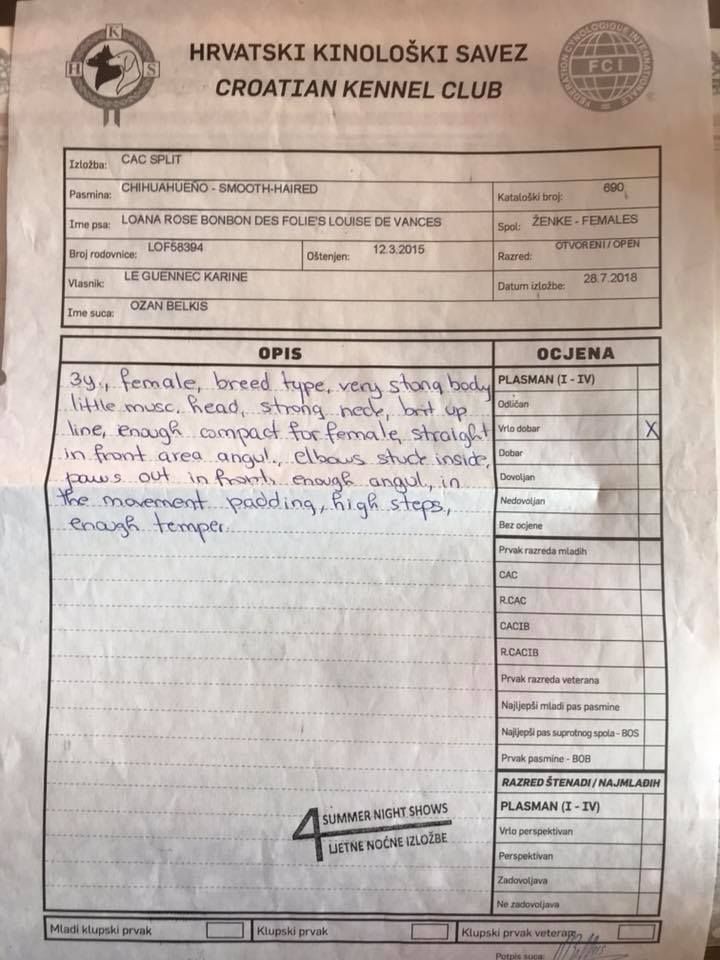 K
H S
HRVATSKI KINOLOŠKI SAVEZ
CROATIAN KENNEL CLUB
FEDERATION CYNOLOGIQUE INTERNATIONALE
FCI
Izložba: CAC SPLIT
Pasmina: CHIHUAHUEÑO - SMOOTH-HAIRED
Kataloški broj: 690
Ime psa: LOANA ROSE BONBON DES FOLIE'S LOUISE DE VANCES
Spol: ŽENKE - FEMALES
Broj rodovnice: LOF58394
Oštenjen: 12.3.2015
Razred: OTVORENI / OPEN
Vlasnik: LE GUENNEC KARINE
Datum izložbe: 28.7.2018
Ime suca: OZAN BELKIS
OPIS
3y., female, breed type, very stong body
little musc. head, strong neck, brit up
line, enough compact for female, straight
in front area angul., elbows stuck inside,
paws out in front, enough angul., in
the movement padding, high steps,
enough temper.
OCJENA
PLASMAN (I - IV)
Odličan
Vrlo dobar X
Dobar
Dovoljan
Nedovoljan
Bez ocjene
Prvak razreda mladih
CAC
R.CAC
CACIB
R.CACIB
Prvak razreda veterana
Najljepši mladi pas pasmine
Najljepši pas suprotnog spola - BOS
Prvak pasmine - BOB
RAZRED ŠTENADI / NAJMLAĐIH
PLASMAN (I - IV)
Vrlo perspektivan
Perspektivan
Zadovoljava
Ne zadovoljava
4 SUMMER NIGHT SHOWS
LJETNE NOĆNE IZLOŽBE
Mladi klupski prvak
Klupski prvak
Klupski prvak veteran
Potpis suca: